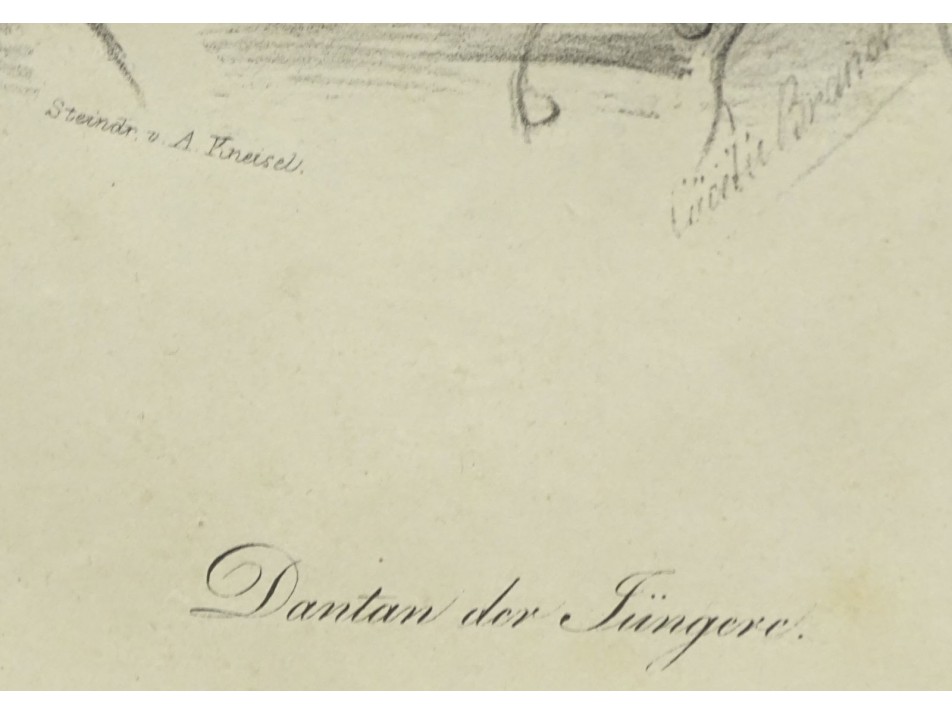 Steindr. v. A. Kneisel.
Cäcilie Brand
Dantan der Jüngere.